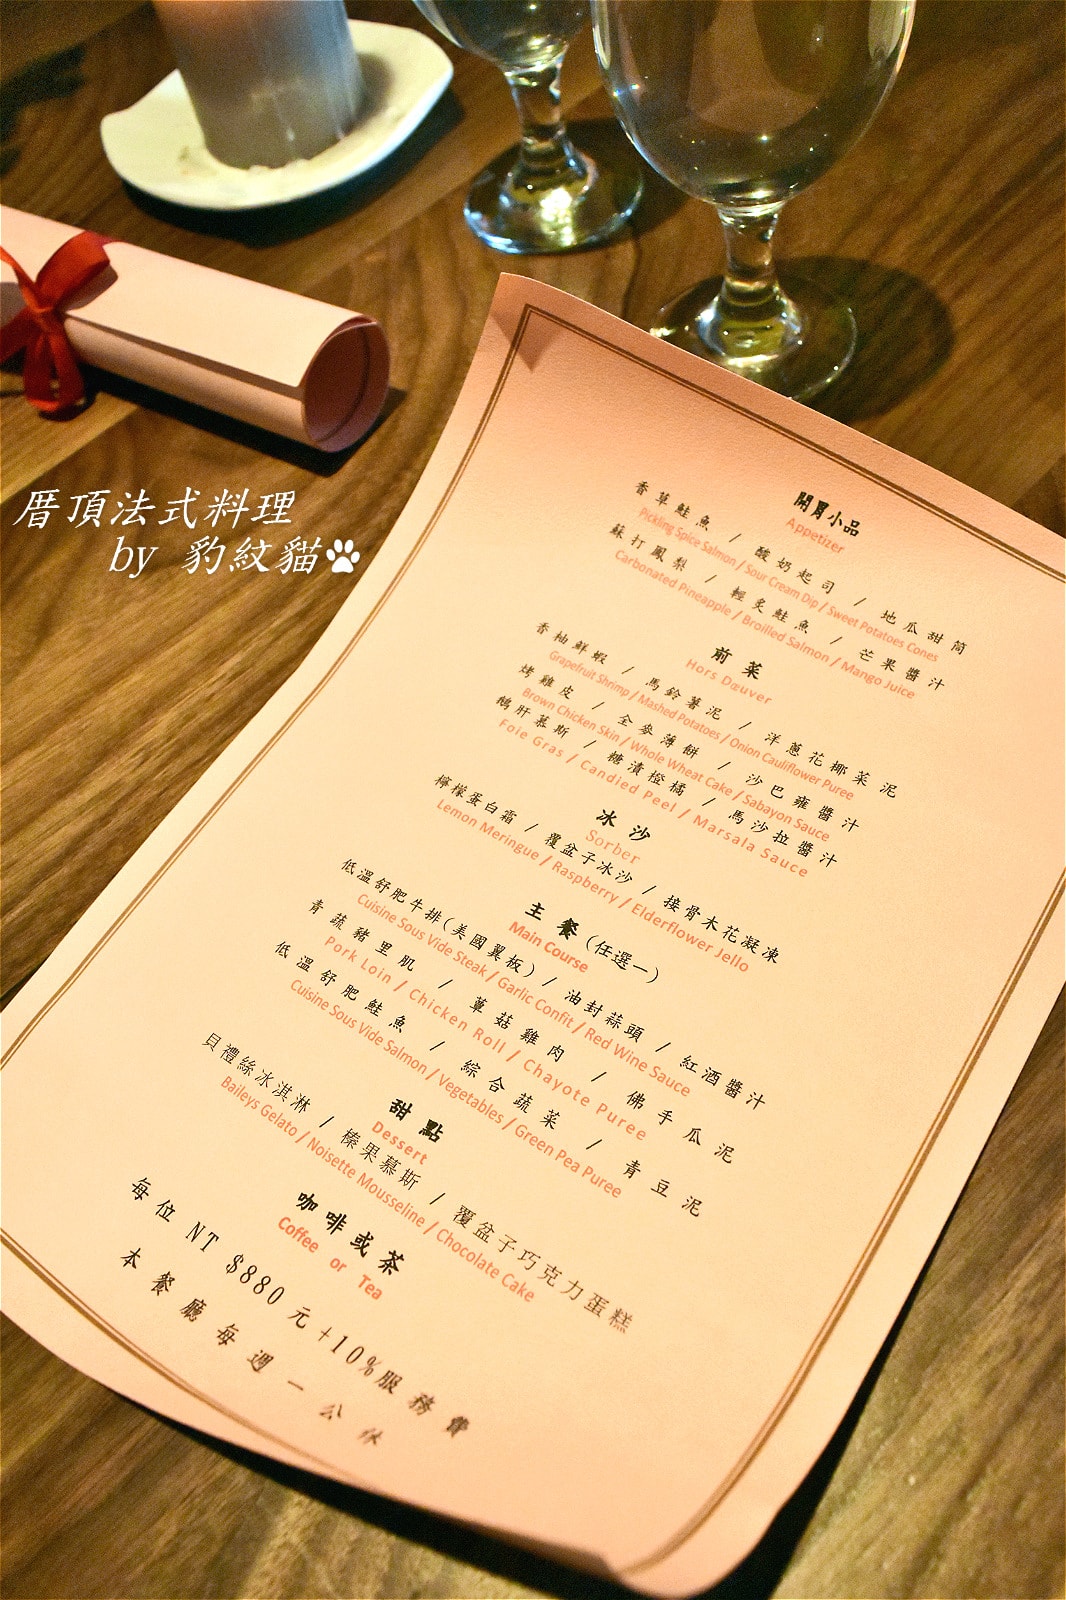 厝頂法式料理
by 豹紋貓
開胃小品
Appetizer
香草鮭魚 / 酸奶起司 / 地瓜甜筒
Pickling Spice Salmon / Sour Cream Dip / Sweet Potatoes Cones
蘇打鳳梨 / 輕炙鮭魚 / 芒果醬汁
Carbonated Pineapple / Broilled Salmon / Mango Juice
前菜
Hors Dœuver
香柚鮮蝦 / 馬鈴薯泥 / 洋蔥花椰菜泥
Grapefruit Shrimp / Mashed Potatoes / Onion Cauliflower Puree
烤雞皮 / 全麥薄餅 / 沙巴雍醬汁
Brown Chicken Skin / Whole Wheat Cake / Sabayon Sauce
鵝肝慕斯 / 糖漬橙橘 / 馬沙拉醬汁
Foie Gras / Candied Peel / Marsala Sauce
冰沙
Sorber
檸檬蛋白霜 / 覆盆子冰沙 / 接骨木花凝凍
Lemon Meringue / Raspberry / Elderflower Jello
主餐(任選一)
Main Course
低溫舒肥牛排(美國翼板) / 油封蒜頭 / 紅酒醬汁
Cuisine Sous Vide Steak / Garlic Confit / Red Wine Sauce
青蔬豬里肌 / 蕈菇雞肉 / 佛手瓜泥
Pork Loin / Chicken Roll / Chayote Puree
低溫舒肥鮭魚 / 綜合蔬菜 / 青豆泥
Cuisine Sous Vide Salmon / Vegetables / Green Pea Puree
甜點
Dessert
貝禮絲冰淇淋 / 榛果慕斯 / 覆盆子巧克力蛋糕
Baileys Gelato / Noisette Mousseline / Chocolate Cake
咖啡或茶
Coffee or Tea
每位 NT $880元+10%服務費
本餐廳每週一公休